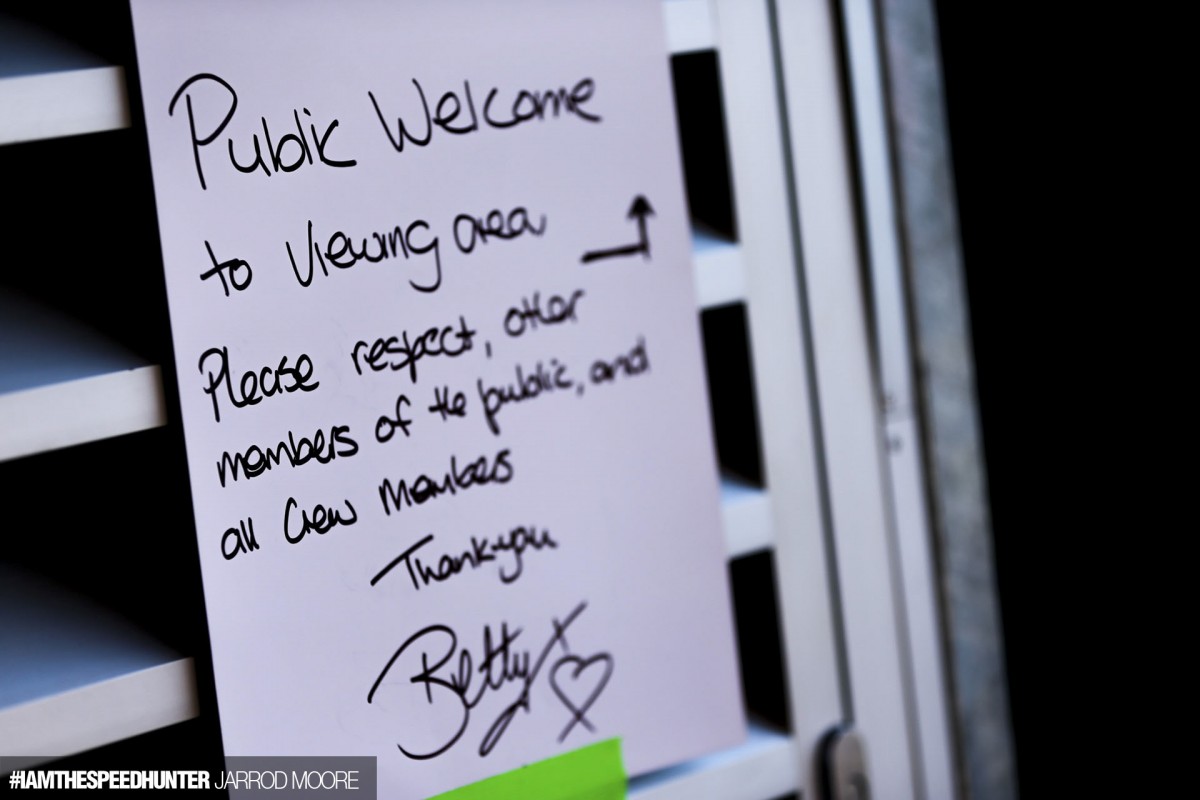 Public Welcome
to Viewing area
Please respect, other
members of the public, and
all Crew Members
Thank-you
Betty x
#IAMTHESPEEDHUNTER JARROD MOORE